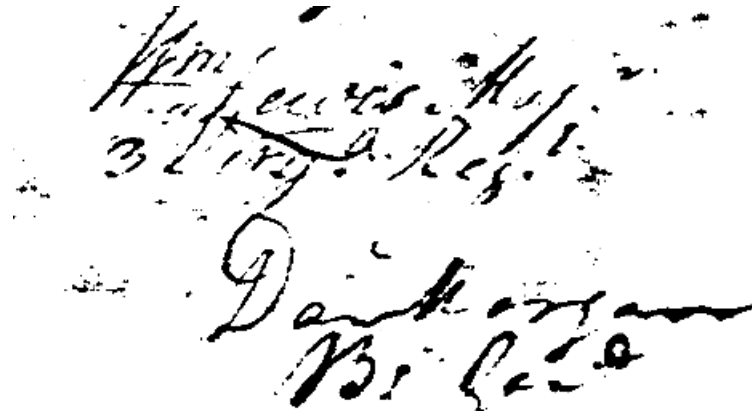 Wm
Lewis Maj.r
3 Virg.a Reg.t
Dan Morgan
B: Gen.l